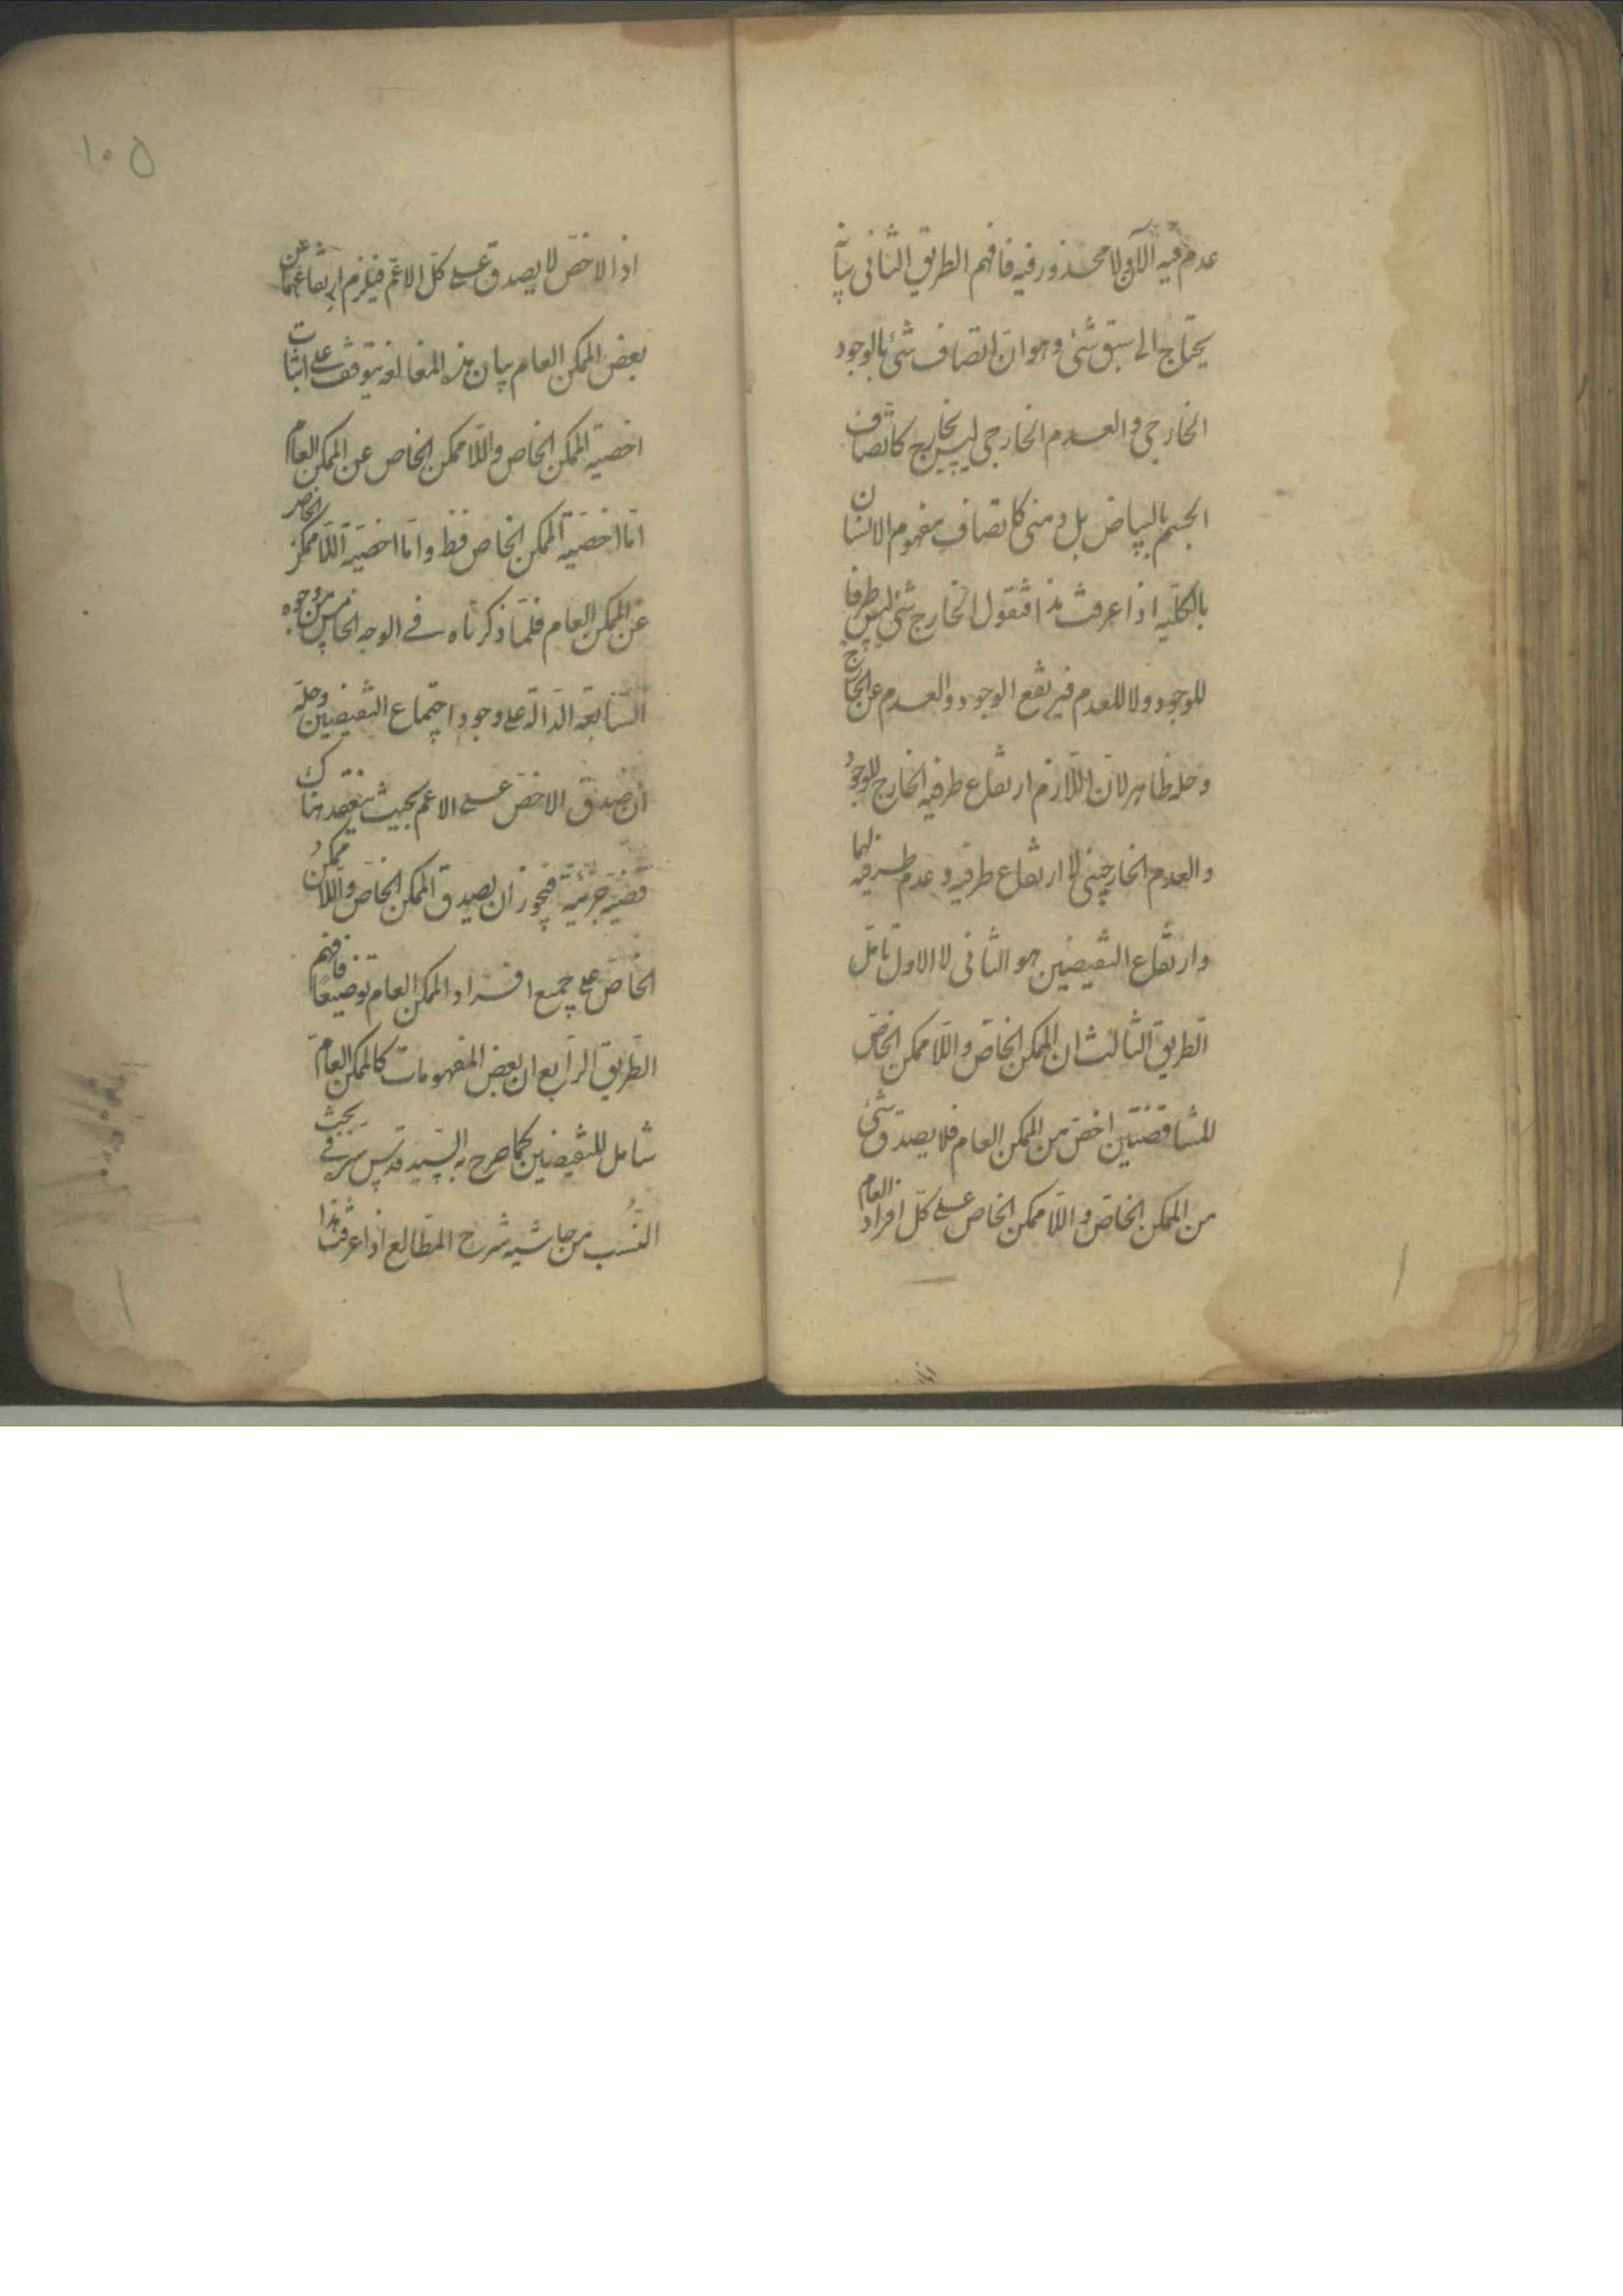 عدم فيه الآن ولا محذور فيه فافهم الطريق الثانى بيانه
يحتاج الى سبق شئ وهو ان اتصاف شئ بالوجود
الخارجى والعدم الخارجى ليس بخارجى كاتصاف
الجسم بالبياض بل ذهنى كاتصاف مفهوم الانسان
بالكليه اذا عرفت هذا فنقول الخارج شئ ليس ظرفا
للوجود ولا للعدم فيرتفع الوجود والعدم عن الخارج
وحله ظاهر لان اللازم ارتفاع ظرفيه الخارج للوجود
والعدم الخارجيين لا ارتفاع ظرفيه وعدم ظرفيه لهما
وارتفاع النقيضين هو الثانى لا الاول تامل
الطريق الثالث ان الممكن الخاص واللا ممكن الخاص
المتناقضين اخص من الممكن العام فلا يصدق شئ
من الممكن الخاص واللا ممكن الخاص على كل افراد العام
١٠٥
اذ الاخص لا يصدق على كل الاعم فيلزم ارتفاعهما عن
بعض الممكن العام بيان هذه المغالطه يتوقف على اثبات
اخصية الممكن الخاص واللا ممكن الخاص عن الممكن العام
اما اخصية الممكن الخاص فظ واما اخصية اللا ممكن الخاص
عن الممكن العام فلما ذكرناه فى الوجه الخامس من وجوه
السابعة الدالة على وجود اجتماع النقيضين وحله
ان صدق الاخص على الاعم بحيث ينعقد هناك
قضية جزئية فيجوز ان يصدق الممكن الخاص واللا ممكن
الخاص على جميع افراد الممكن العام توضيعا فافهم
الطريق الرابع ان بعض المفهومات كالممكن العام
شامل للنقيضين كما صرح به السيد قدس سره فى بحث
النسب من حاشيه شرح المطالع اذا عرفت هذا